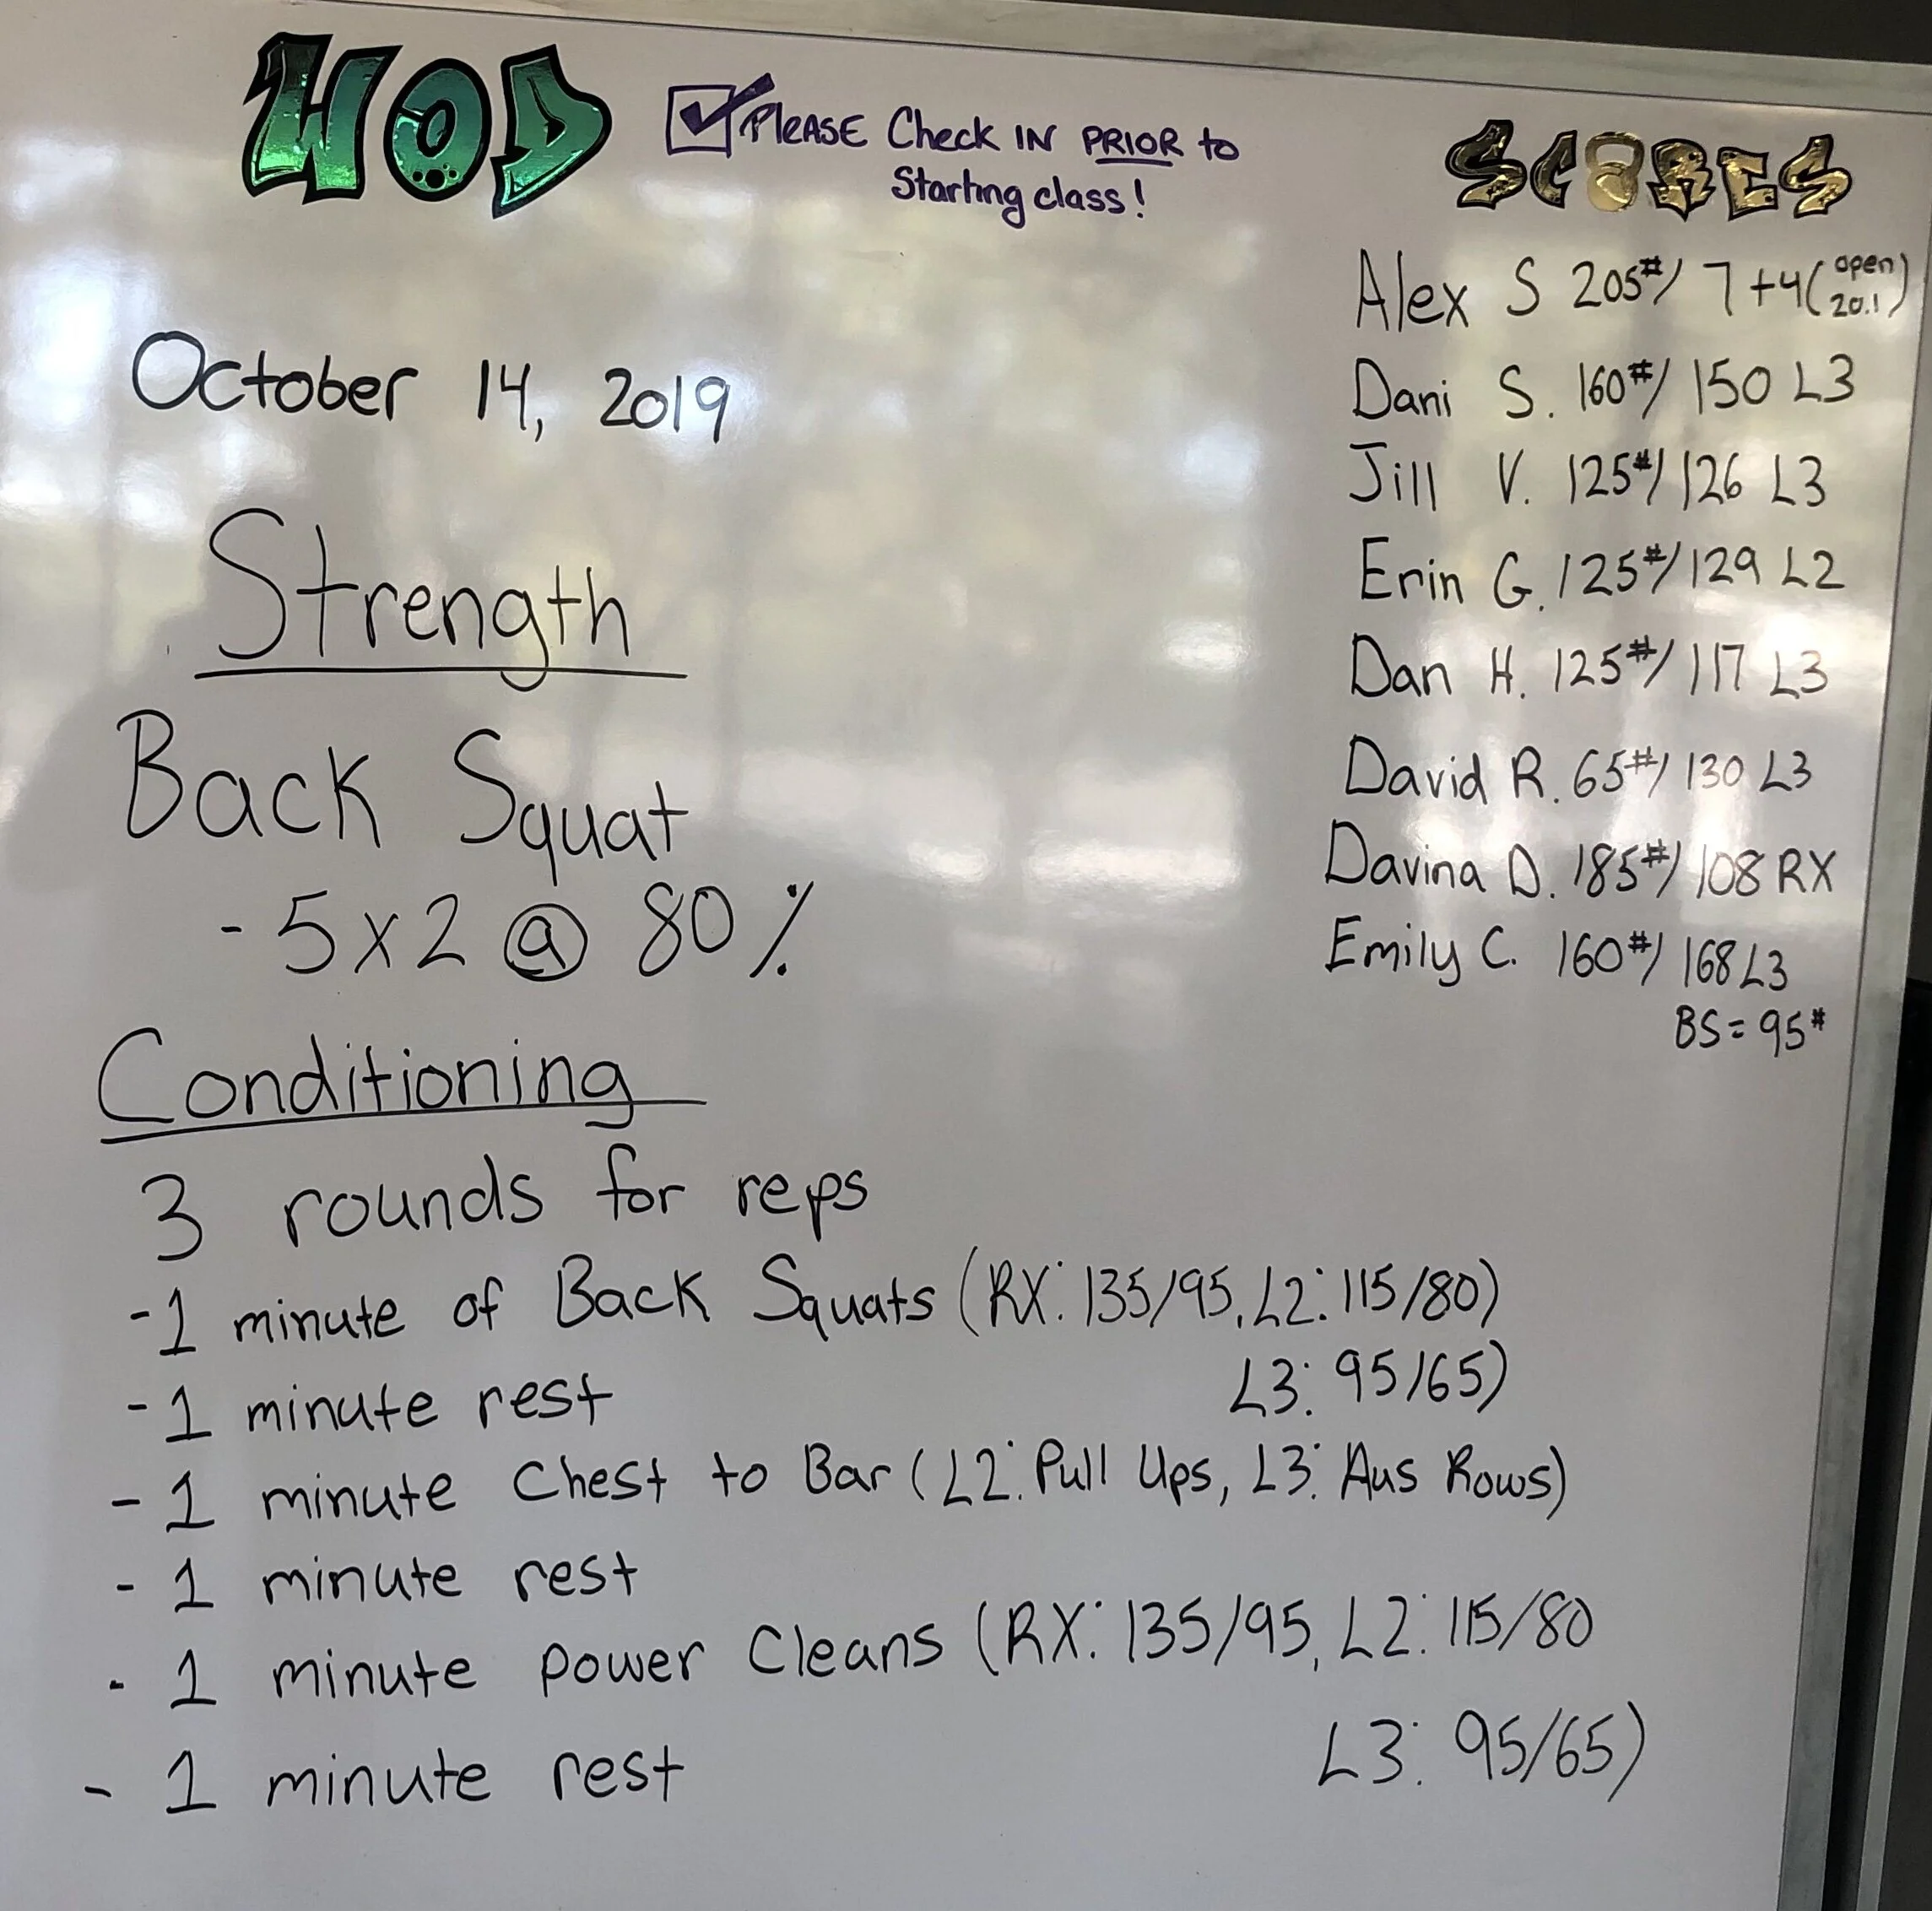 WOD
Please Check IN PRIOR to
Starting class!
October 14, 2019
Strength
Back Squat
- 5 x 2 @ 80 %
Conditioning
3 rounds for reps
- 1 minute of Back Squats (RX: 135/95, L2: 115/80)
L3: 95/65)
- 1 minute rest
- 1 minute Chest to Bar (L2: Pull Ups, L3: Aus Rows)
- 1 minute rest
- 1 minute power Cleans (RX: 135/95, L2: 115/80
L3: 95/65)
- 1 minute rest
SCORES
Alex S 205#/ 7+4 (open 20.1)
Dani S. 160#/ 150 L3
Jill V. 125#/ 126 L3
Erin G. 125#/ 129 L2
Dan H. 125#/ 117 L3
David R. 65#/ 130 L3
Davina D. 185#/ 108 RX
Emily C. 160#/ 168 L3
BS = 95#